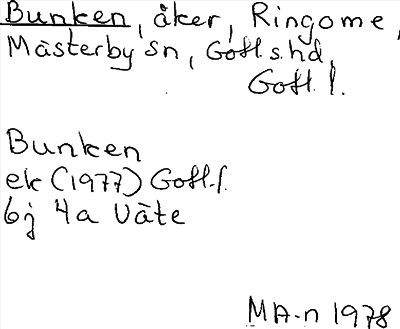 Bunken, åker, Ringome,
Mästerby sn, Gotl.s.hd,
Gotl. l.
Bunken
ek (1977) Gotl. l.
6j 4a Väte
MA-n 1978